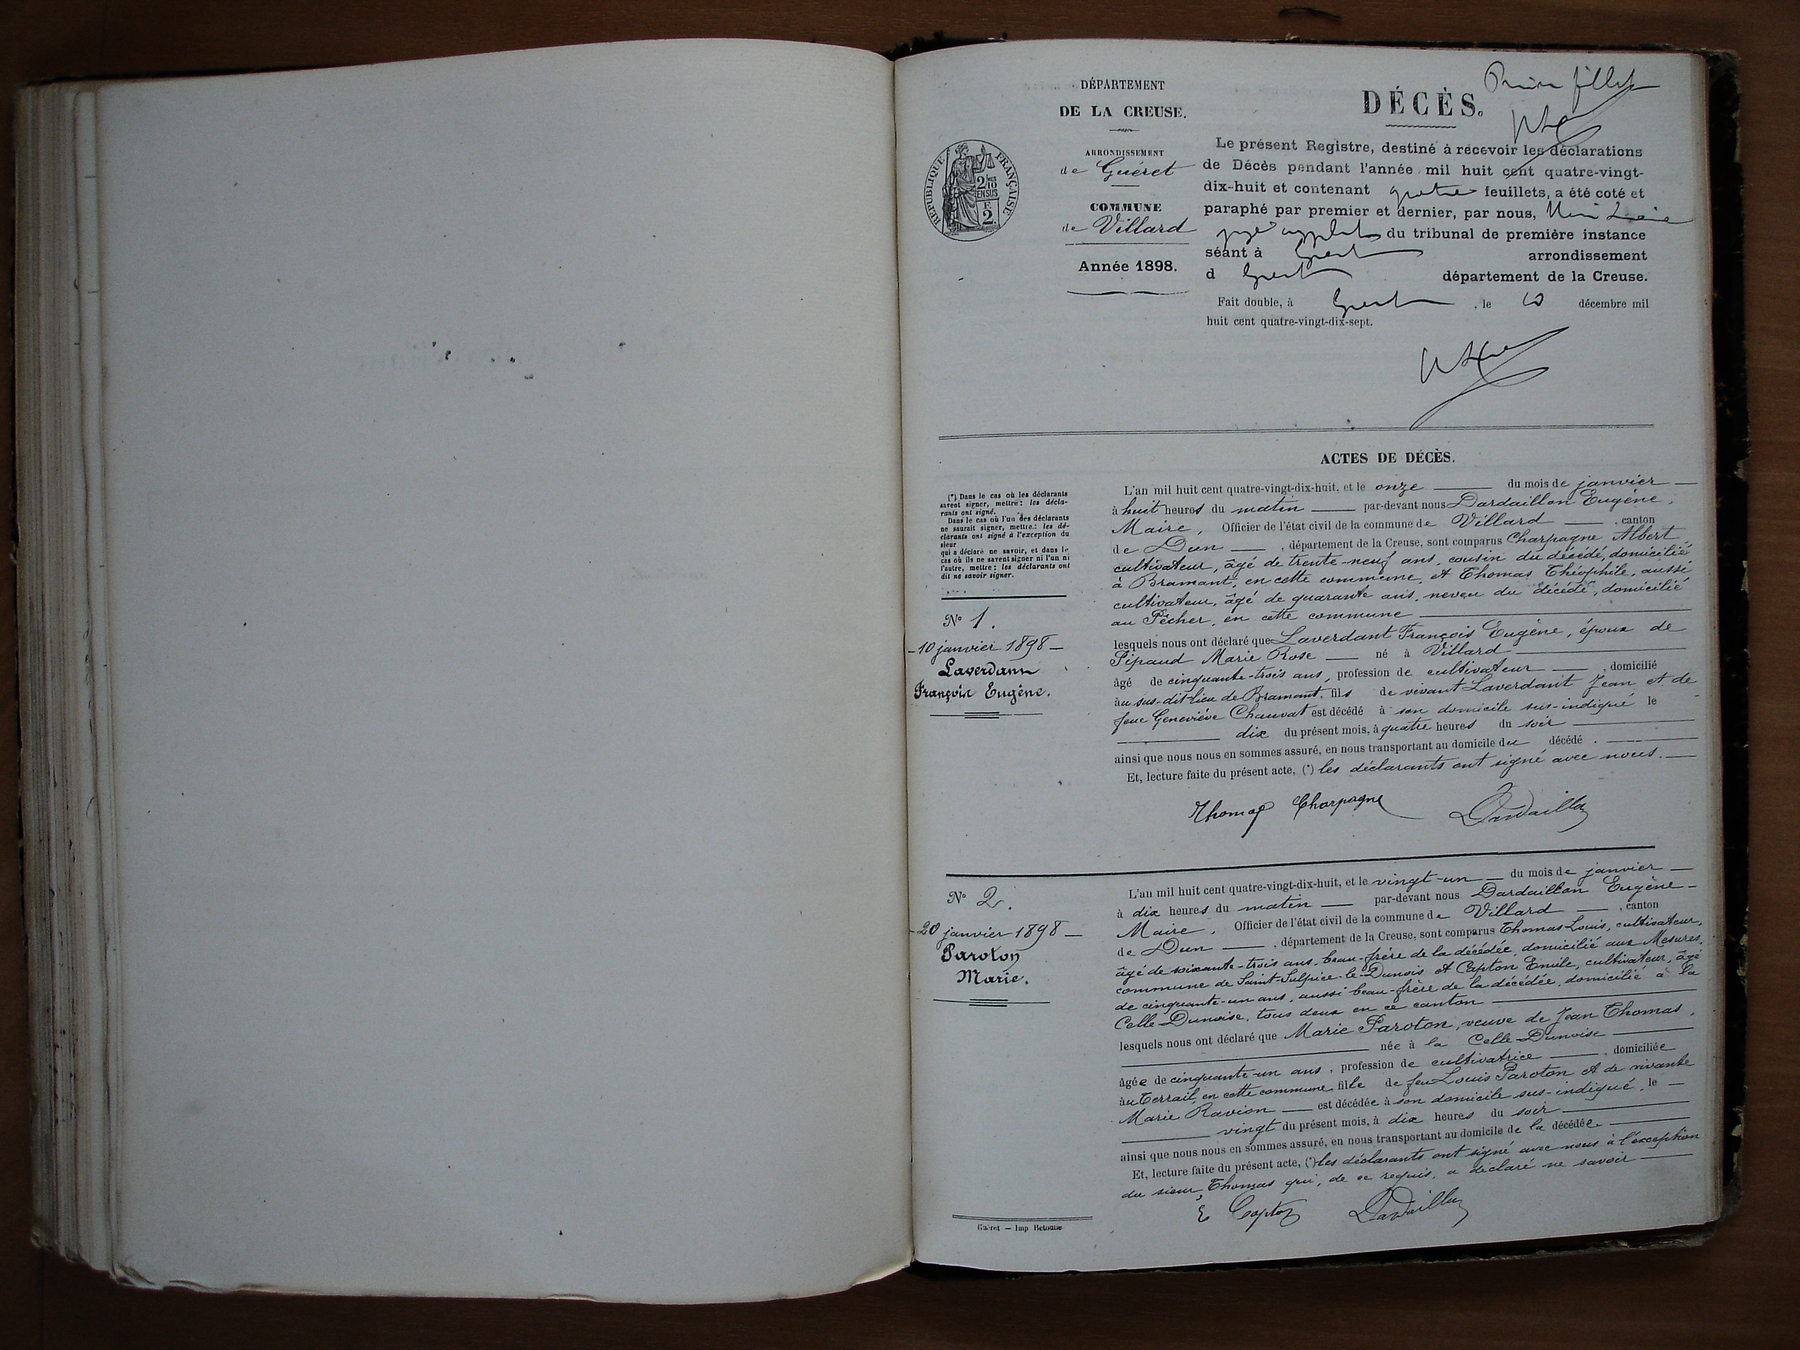 DÉPARTEMENT
DE LA CREUSE.
ARRONDISSEMENT
de Guéret
COMMUNE
de Villard
Année 1898.
RÉPUBLIQUE FRANÇAISE
2 10es
EN SUS
E
2.
DÉCÈS.
Le présent Registre, destiné à recevoir les déclarations
de Décès pendant l'année mil huit cent quatre-vingt-
dix-huit et contenant quatre feuillets, a été coté et
paraphé par premier et dernier, par nous,
juge suppléant du tribunal de première instance
séant à Guéret arrondissement
d Guéret département de la Creuse.
Fait double, à Guéret, le décembre mil
huit cent quatre-vingt-dix-sept.
ACTES DE DÉCÈS.
(*) Dans le cas où les déclarants
savent signer, mettre: les décla-
rants ont signé.
Dans le cas où l'un des déclarants
ne saurait signer, mettre: les dé-
clarants ont signé à l'exception du
sieur
qui a déclaré ne savoir, et dans le
cas où ils ne savent signer ni l'un ni
l'autre, mettre: les déclarants ont
dit ne savoir signer.
N° 1.
10 janvier 1898
Laverdant
François Eugène.
L'an mil huit cent quatre-vingt-dix-huit, et le onze du mois de janvier
à huit heures du matin par-devant nous Dardaillon Eugène,
Maire, Officier de l'état civil de la commune de Villard, canton
de Dun, département de la Creuse, sont comparus Charpagne Albert
cultivateur, âgé de trente-neuf ans, cousin du décédé, domicilié
à Bramant, en cette commune, et Thomas Théophile, aussi
cultivateur, âgé de quarante ans, neveu du décédé, domicilié
au Pêcher, en cette commune
lesquels nous ont déclaré que Laverdant François Eugène, époux de
Pipaud Marie Rose né à Villard
âgé de cinquante-trois ans, profession de cultivateur, domicilié
au sus-dit lieu de Bramant, fils de vivant Laverdant Jean et de
feue Geneviève Chauvat est décédé à son domicile sus-indiqué le
dix du présent mois, à quatre heures du soir
ainsi que nous nous en sommes assuré, en nous transportant au domicile du décédé.
Et, lecture faite du présent acte, (*) les déclarants ont signé avec nous.
Thomas Charpagne Dardaillon
N° 2.
20 janvier 1898
Paroton
Marie.
L'an mil huit cent quatre-vingt-dix-huit, et le vingt-un du mois de janvier
à dix heures du matin par-devant nous Dardaillon Eugène
Maire, Officier de l'état civil de la commune de Villard, canton
de Dun, département de la Creuse, sont comparus Thomas Louis, cultivateur,
âgé de soixante-trois ans, beau-frère de la décédée, domicilié aux Mesures,
commune de Saint-Sulpice-le-Dunois et Capton Emile, cultivateur, âgé
de cinquante-un ans, aussi beau-frère de la décédée, domicilié à la
Celle Dunoise, tous deux en ce canton
lesquels nous ont déclaré que Marie Paroton, veuve de Jean Thomas,
née à la Celle Dunoise
âgée de cinquante-un ans, profession de cultivatrice, domiciliée
au Terrail, en cette commune fille de feu Louis Paroton et de vivante
Marie Ravion est décédée à son domicile sus-indiqué, le
vingt du présent mois, à dix heures du soir
ainsi que nous nous en sommes assuré, en nous transportant au domicile de la décédée
Et, lecture faite du présent acte, (*) les déclarants ont signé avec nous à l'exception
du sieur Thomas qui, de ce requis, a déclaré ne savoir
E Capton Dardaillon
Guéret — Imp Betoulle